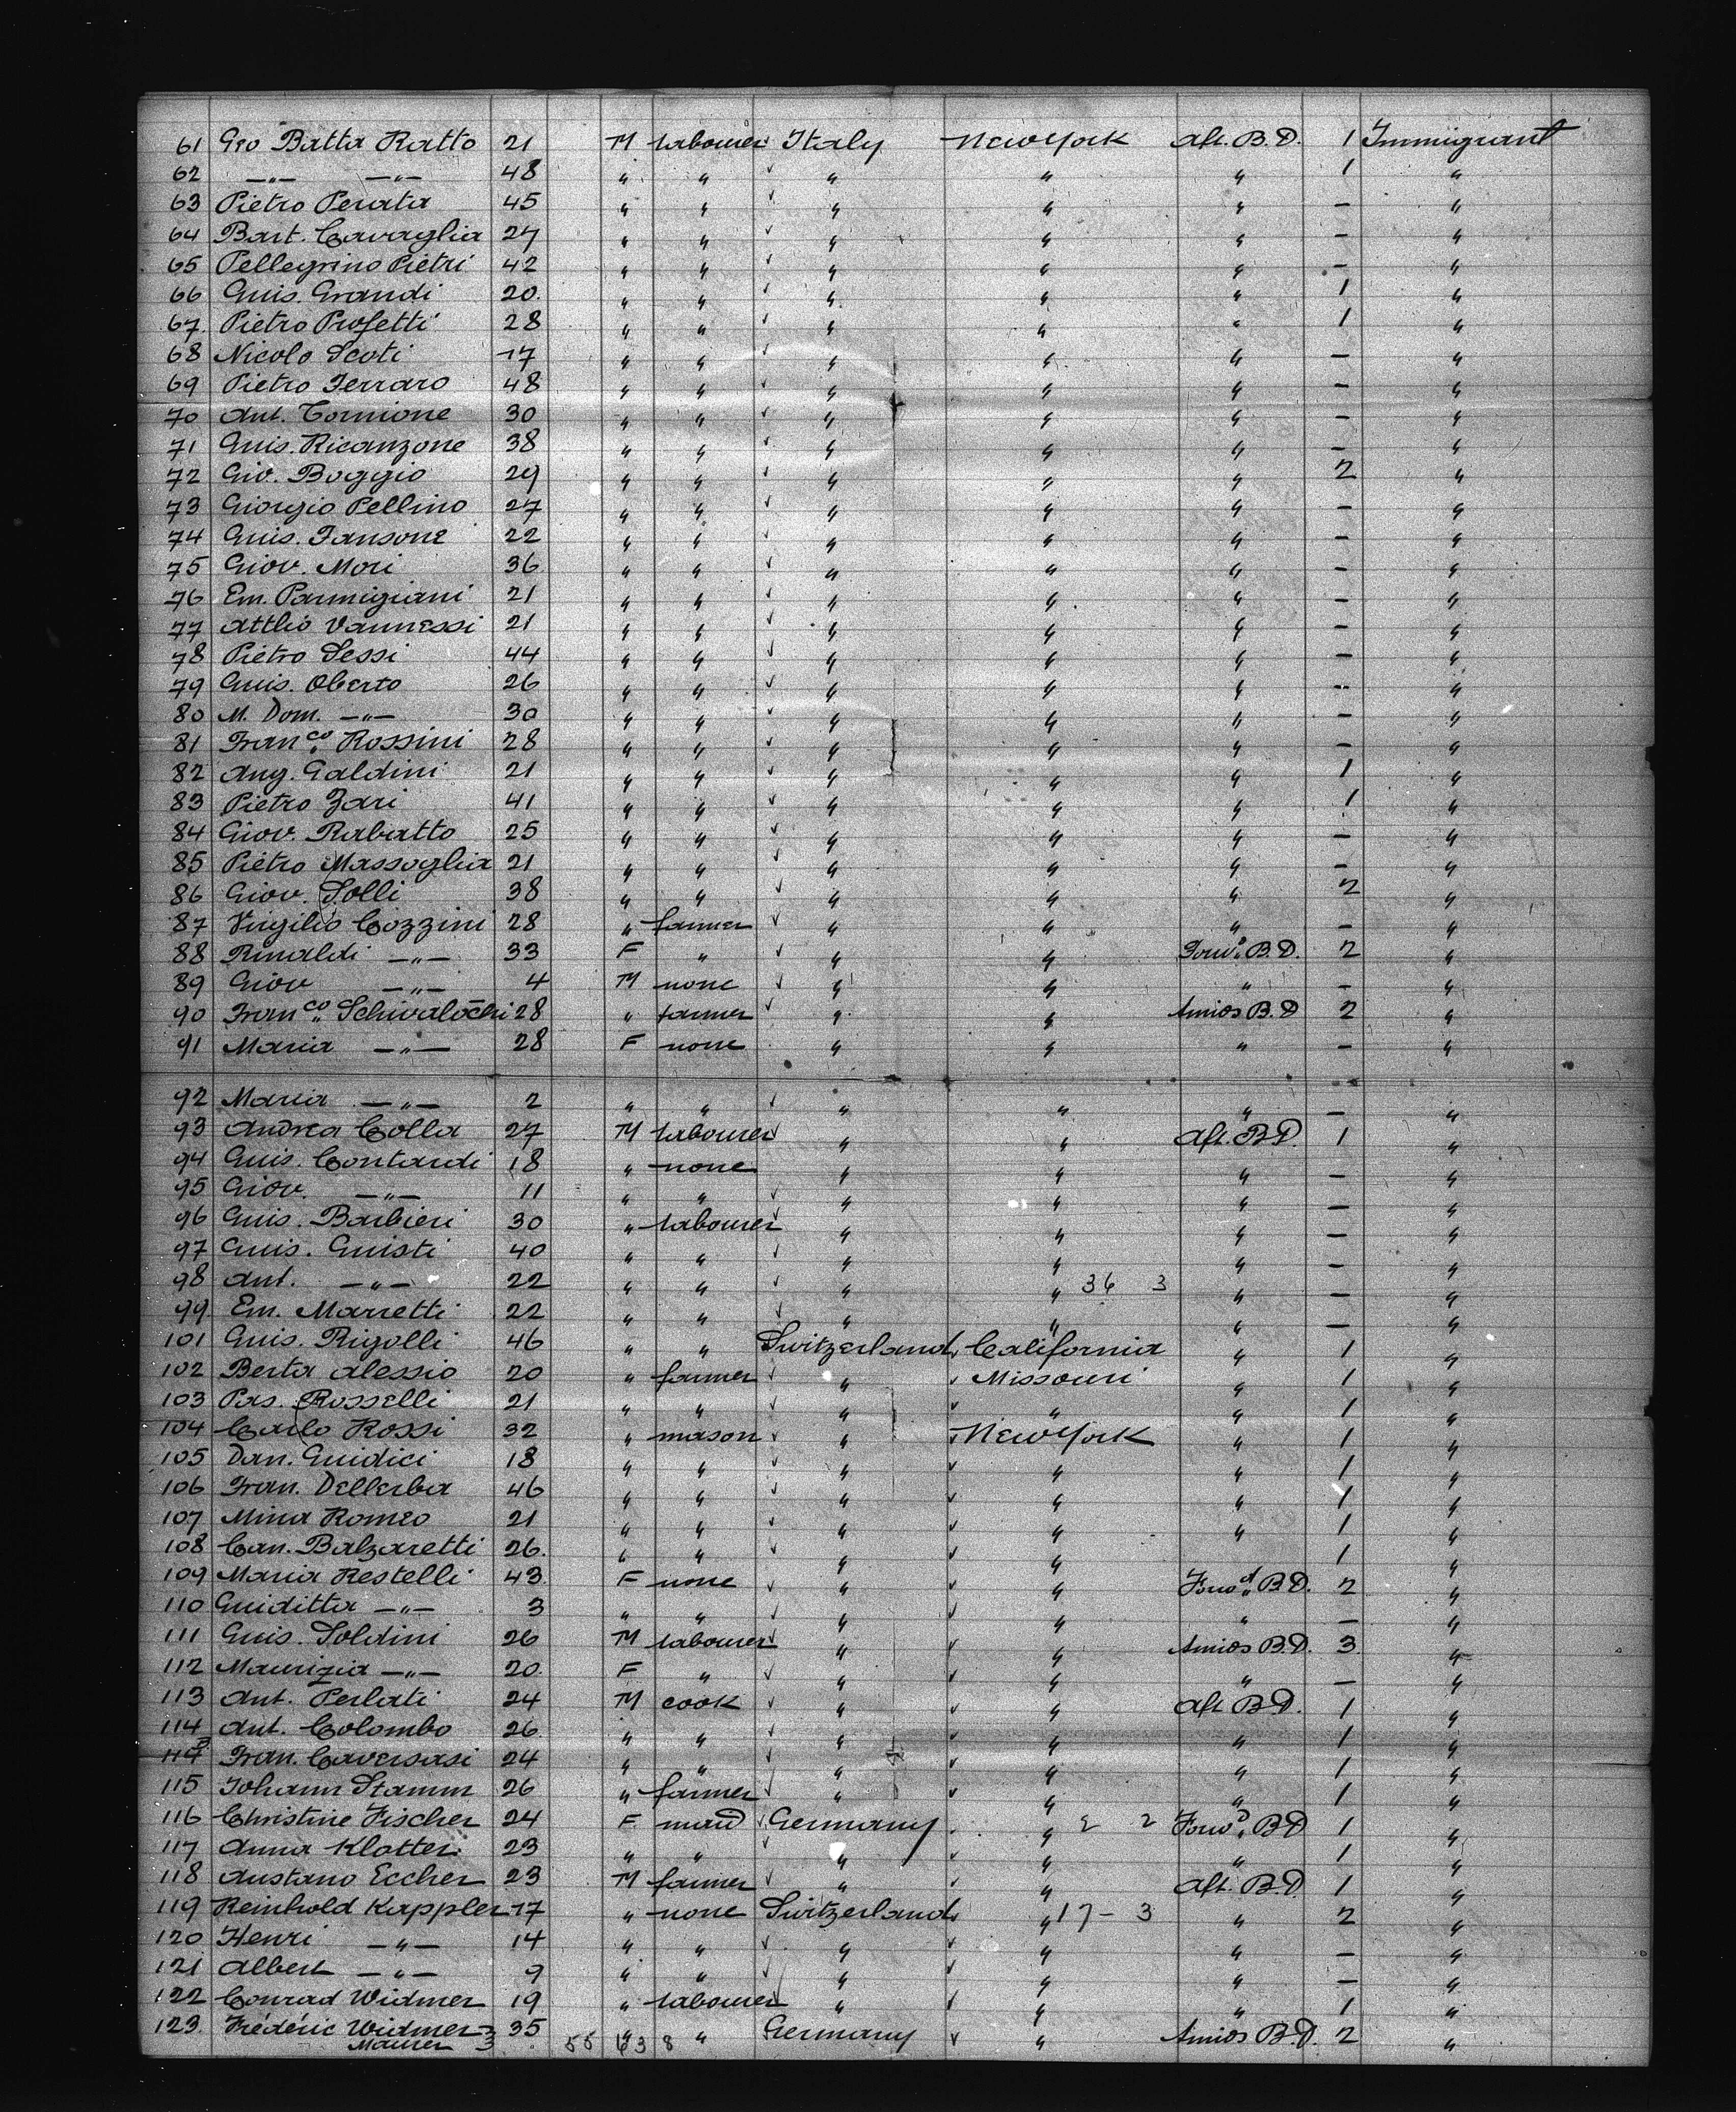 61 Gio Batta Ratto 21 M labourer Italy New York Aft. B.D. 1 Immigrant
62 —"— —"— 48 " " " " " 1 "
63 Pietro Perata 45 " " " " " — "
64 Bart. Cavaglia 27 " " " " " — "
65 Pellegrino Pietri 42 " " " " " — "
66 Guis. Grandi 20. " " " " " 1 "
67. Pietro Profetti 28 " " " " " 1 "
68 Nicolo Scoti 17 " " " " " — "
69 Pietro Ferraro 48 " " " " " — "
70 Ant. Tornione 30 " " " " " — "
71 Guis. Ricanzone 38 " " " " " — "
72 Gio. Boggio 29 " " " " " 2 "
73 Giorgio Pellino 27 " " " " " — "
74 Guis. Fansone 22 " " " " " — "
75 Giov. Mori 36 " " " " " — "
76 Em. Parmigiani 21 " " " " " — "
77 Attlio Vannessi 21 " " " " " — "
78 Pietro Sessi 44 " " " " " — "
79 Guis. Oberto 26 " " " " " — "
80 M. Dom. —"— 30 " " " " " — "
81 Franco. Rossini 28 " " " " " — "
82 Aug. Galdini 21 " " " " " 1 "
83 Pietro Zari 41 " " " " " 1 "
84 Giov. Rabatto 25 " " " " " — "
85 Pietro Massoglia 21 " " " " " — "
86 Giov. Solli 38 " " " " " 2 "
87 Virgilio Cozzini 28 " farmer " " " — "
88 Rinaldi —"— 33 F " " " Forwd. B.D. 2 "
89 Giov —"— 4 M none " " " — "
90 Franco. Schivalochi 28 " farmer " " Amids B.D 2 "
91 Maria —"— 28 F none " " " — "
92 Maria —"— 2 " " " " " — "
93 Andrea Colla 27 M labourer " " Aft. B.D. 1 "
94 Guis. Contardi 18 " none " " " — "
95 Giov. —"— 11 " " " " " — "
96 Guis. Barbieri 30 " labourer " " " — "
97 Guis. Guisti 40 " " " " " — "
98 Ant. —"— 22 " " " " 36 3 " — "
99. Em. Marretti 22 " " " " " — "
101 Guis. Rigolli 46 " " Switzerland California " 1 "
102 Berta Alessio 20 " farmer " Missouri " 1 "
103 Pas. Rosselli 21 " " " " " 1 "
104 Carlo Rossi 32 " mason " New York " 1 "
105 Dan. Guidici 18 " " " " " 1 "
106 Fran. Dellerba 46 " " " " " 1 "
107 Mina Romeo 21 " " " " " 1 "
108 Can. Balzaretti 26. " " " " 1 "
109 Maria Restelli 43. F none " " Forwd. B.D. 2 "
110 Guiditta —"— 3 " " " " " — "
111 Guis. Soldini 26 M labourer " " Amids B.D. 3 "
112 Maurizia —"— 20. F " " " " — "
113 Ant. Perlati 24 M cook " " Aft B.D. 1 "
114 Ant. Colombo 26. " " " " " 1 "
114 Fran. Caversasi 24 " " " " " 1 "
115 Johann Stamm 26 " farmer " " " 1 "
116 Christine Fischer 24 F maid Germany " 2 2 Forwd. B.D 1 "
117 Anna Klotter 23 " " " " " 1 "
118 Austano Eccher 23 M farmer " " Aft. B.D. 1 "
119 Reinhold Kappler 17 " none Switzerland " 17 - 3 " 2 "
120 Henri —"— 14 " " " " " — "
121 Albert —"— 9 " " " " " — "
122 Conrad Widmer 19 " labourer " " " 1 "
123. Frédéric Widmer 35 " " Germany " Amids B.D. 2 "
Maurer 3 55 63 8